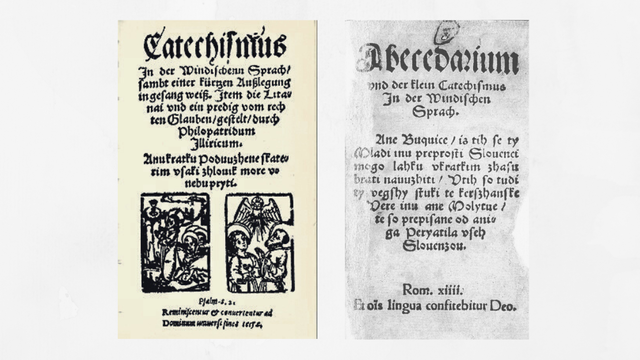 Catechismus
In der Windischenn Sprach/
sambt einer kürtzen Außlegung
in gesang weiß. Item die Lita-
nai vnd ein predig vom rech
ten Glauben/gestelt/durch
Philopatridum
Illiricum.
Anu kratku Poduuzhene skate-
rim vsaki zhlouik more ve
nebu pryti.
Psalm.
Reminiscentur & conuertentur ad
Dominum vniuersi fines terræ.
Abecedarium
vnd der klein Catechismus
In der Windischen
Sprach.
Ane Buquice/ is tih se ty
Mladi inu preprosti Slouenci
mogo lahku vkratkim zhasu
brati nauuzhiti/ Vtih so tudi
ty vegshy stuki te kerszhanske
Vere inu ane Molytue/
te so prepisane od ani-
ga Peryatila vseh
Slouenzou.
Rom. xiiii.
Et oĩs lingua confitebitur Deo.